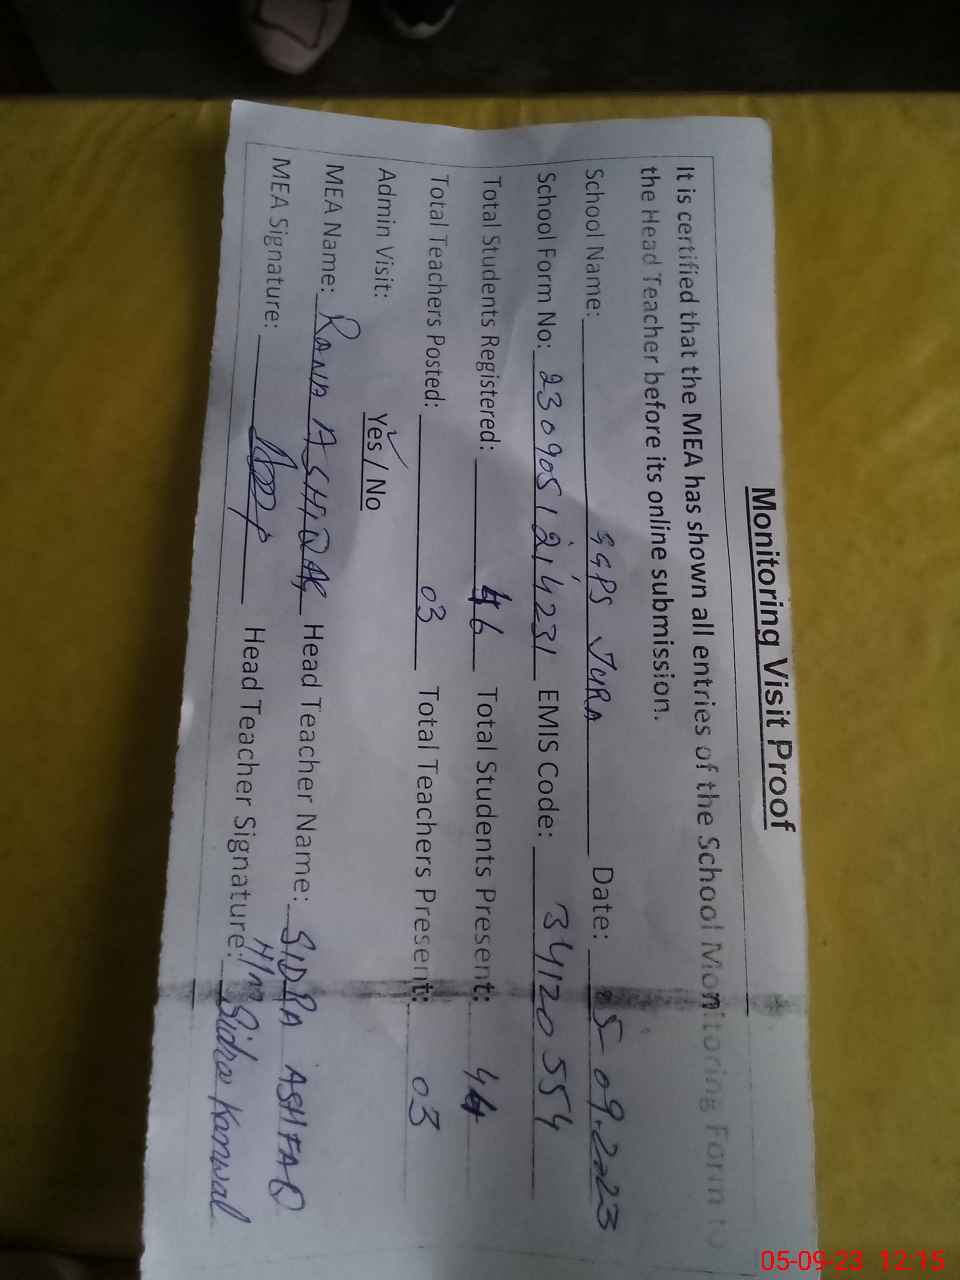 Monitoring Visit Proof
It is certified that the MEA has shown all entries of the School Monitoring Form to
the Head Teacher before its online submission.
School Name: GGPS JURA Date: 5-09-2023
School Form No: 2309051214231 EMIS Code: 34120554
Total Students Registered: 46 Total Students Present: 44
Total Teachers Posted: 03 Total Teachers Present: 03
Admin Visit: Yes / No
MEA Name: RANA ASHIQ Head Teacher Name: SIDRA ASHFAQ
MEA Signature: Head Teacher Signature: H/m Sidra Kanwal
05-09-23 12:15